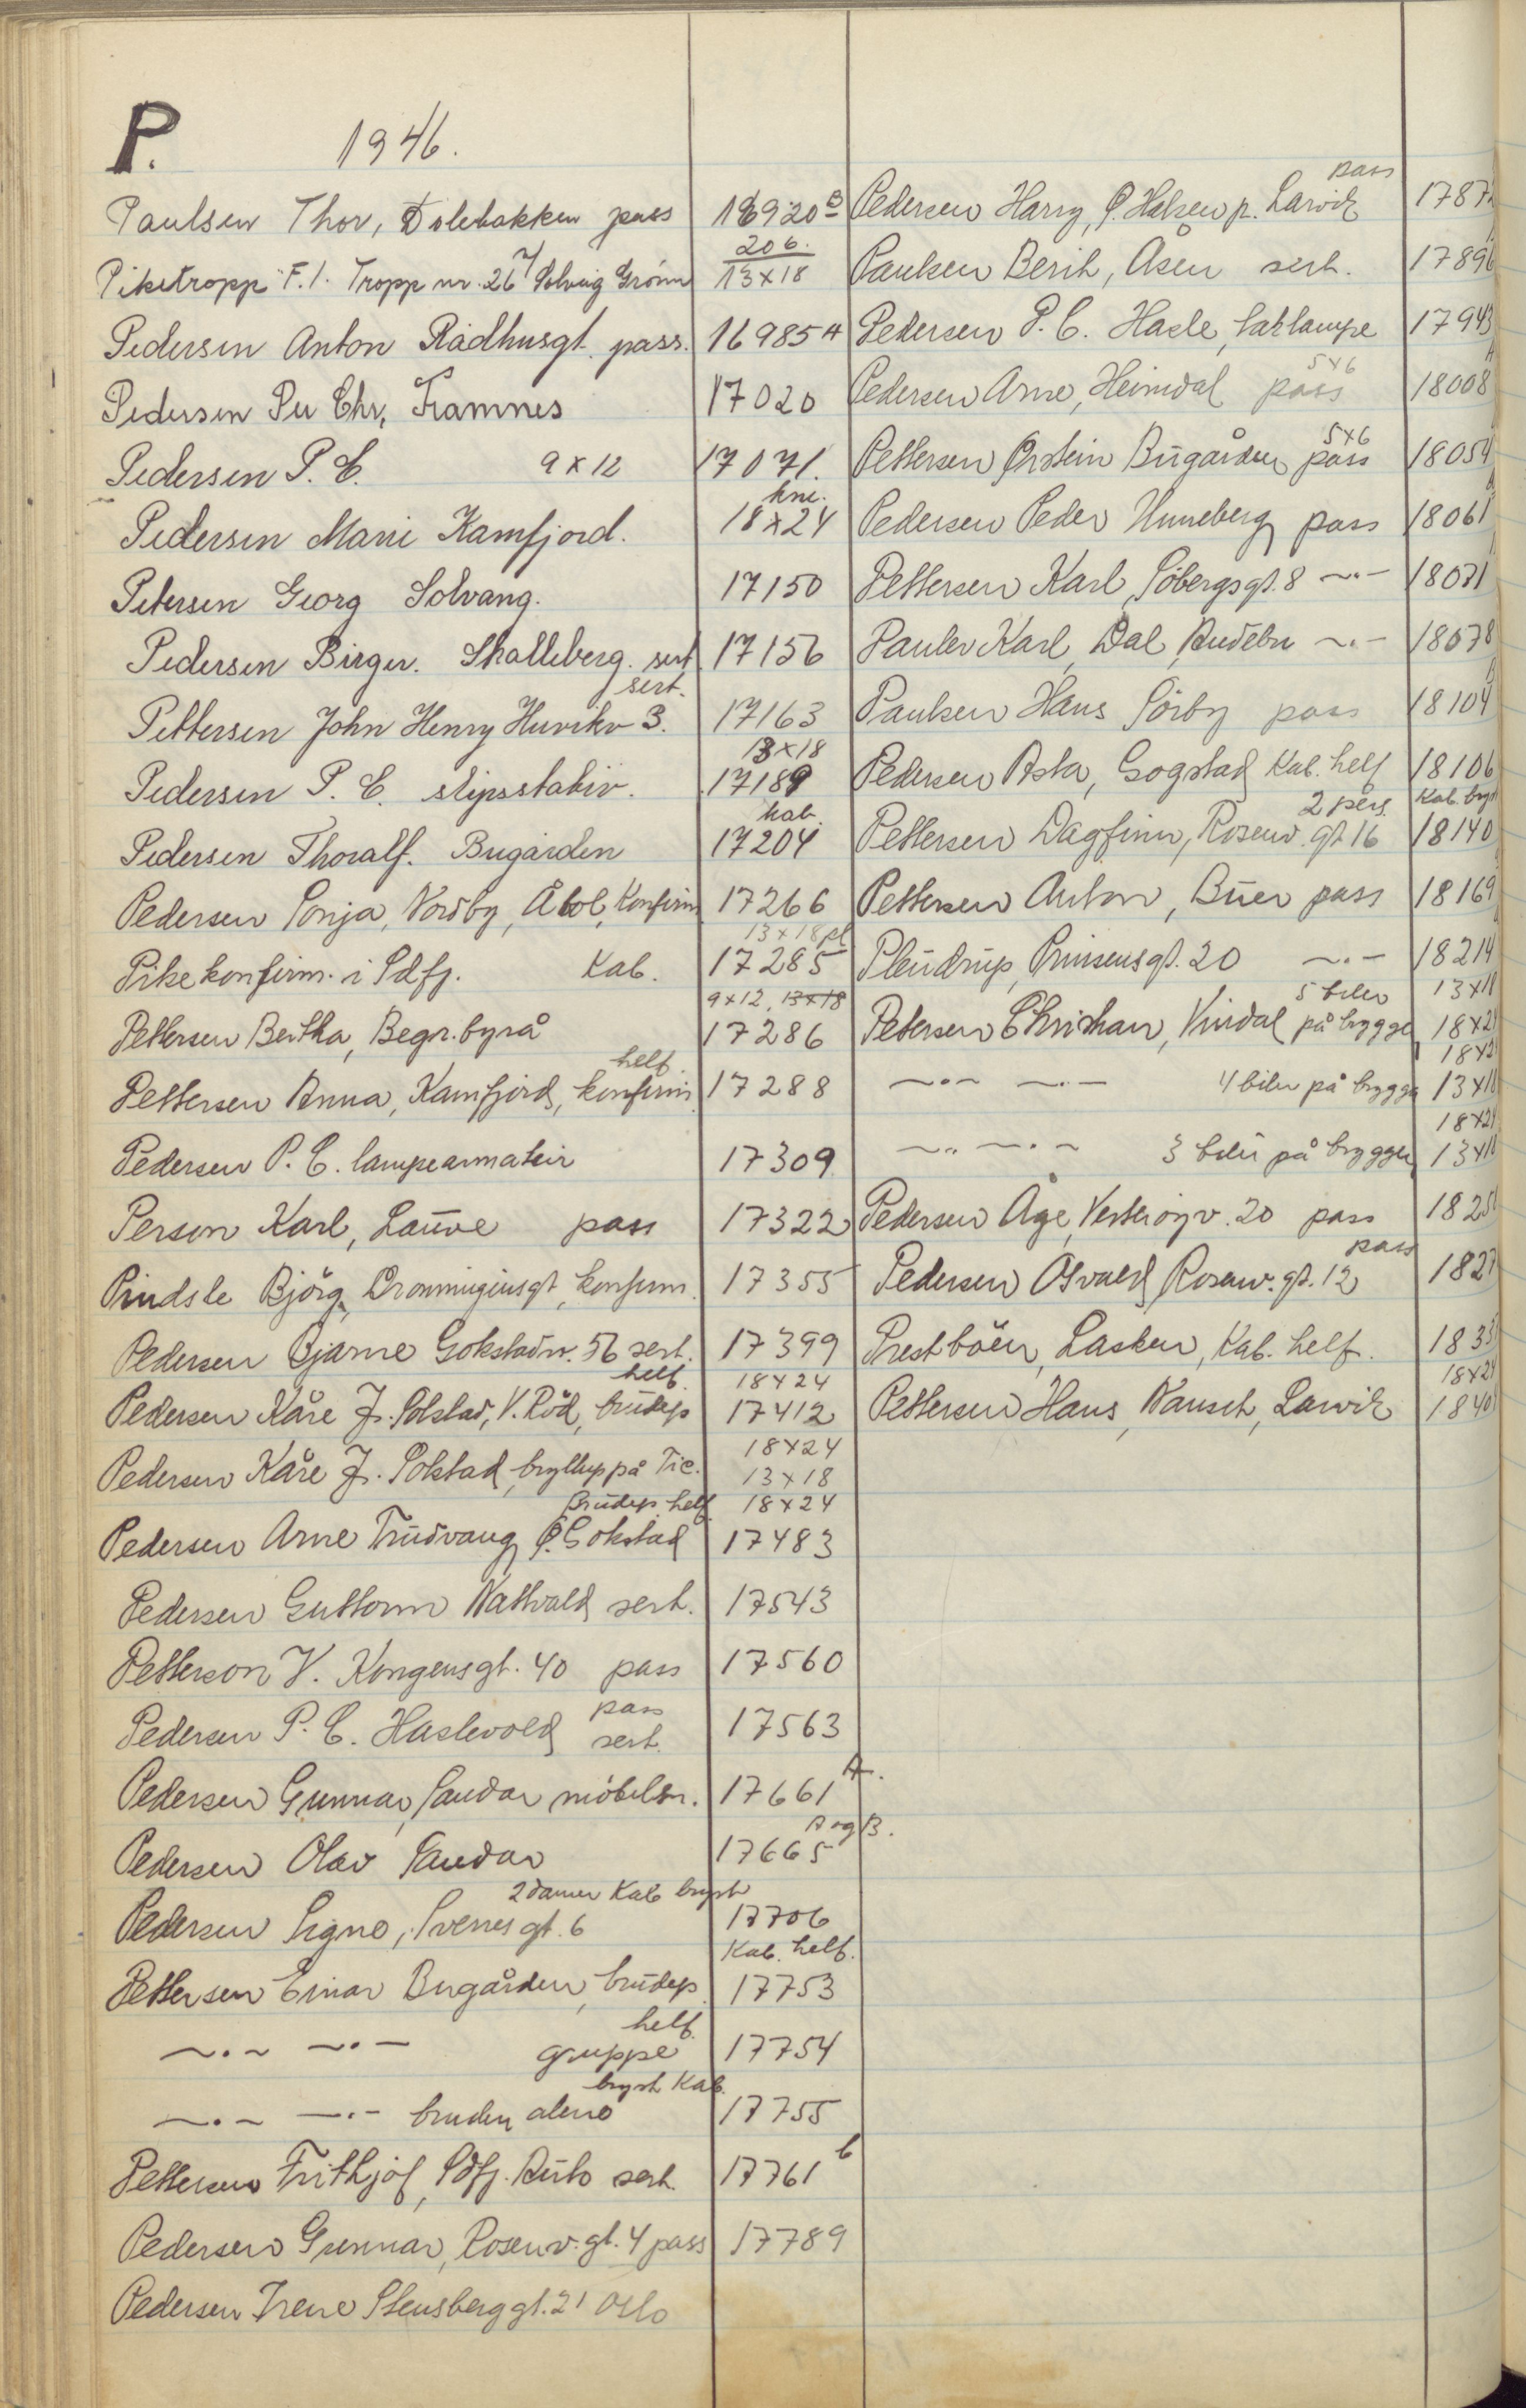 P. 1946.
Paulsen Thor, Dølebakken pass 16920 B
Piketropp F.1. Tropp nr. 26 Solveig Grønn 206. 13x18
Pedersen Anton Rådhusgt. pass. 16985 A
Pedersen Per Chr, Framnes 17020
Pedersen P. C. 9x12 17071.
Pedersen Marie Kamfjord. kne. 18x24
Petersen Georg Solvang. 17150
Pedersen Birger. Skalleberg. sert. 17156
Pettersen John Henry Hvirkv 3. sert. 17163
Pedersen P. C. slipsstativ. 13x18 17189
Pedersen Thoralf. Bugården kab. 17204
Pedersen Sonja, Nordby, Åbol, Konfirm 17266
Pikekonfirm. i Sdfj. Kab. 13x18 pl 17285
Pettersen Bertha, Begr.byrå 9x12, 13x18 17286
Pettersen Anna, Kamfjord, konfirm helf. 17288
Pedersen P. C. lampearmatur 17309
Person Karl, Lauve pass 17322
Pindsle Bjørg, Dronningensgt, konfirm. 17355
Pedersen Bjarne Gokstadv. 56 sert. 17399
Pedersen Kåre J. Solstad, V. Rød, brudep helf. 18x24 17412
Pedersen Kåre J. Solstad, bryllup på Tie. 18x24 13x18
Pedersen Arne Trudvang Ø. Gokstad Brudep. helf 18x24 17483
Pedersen Guttorm Nattvald sert. 17543
Petterson V. Kongensgt. 40 pass 17560
Pedersen P. C. Haslevold pass sert. 17563
Pedersen Gunnar, Sandar møbelsn. 17661 A.
Pedersen Olav Sandar 17665 A og B.
Pedersen Signe, Svenes gt. 6 2 damer Kab bryst 17706
Pettersen Einar Bugården, brudep. Kab. helf. 17753
~·~ ~·~ gruppe helf. 17754
~·~ ~·~ bruden alene bryst Kab. 17755
Pettersen Frithjof, Sdfj. Auto sert. 17761 b
Pedersen Gunnar, Rosenv. gt. 4 pass 17789
Pedersen Irene Stensberggt. 21 Oslo
Pedersen Harry, Ø. Halsen p. Larvik pass 1787
Paulsen Berit, Åsen sert. 17896
Pedersen P. C. Hasle, taklampe 17943
Pedersen Arne, Heimdal pass 5x6 18008
Pettersen Ørstein Bugården pass 5x6 18054
Pedersen Peder Unneberg pass 18061
Pettersen Karl, Søbergsgt. 8 ~·~ 18071
Paulev Karl, Dal, Andebu ~·~ 18078
Paulsen Hans Sørby pass 18104
Pedersen Asta, Gogstad Kab. helf 18106
Pettersen Dagfinn, Rosenv. gt 16 2 pers. Kab. bryst 18140
Pettersen Anton, Buer pass 18169
Pleudrup, Prinsensgt. 20 ~·~ 18214
Petersen Christian, Vindal på brygge 5 biler 13x18 18x24
~·~ ~·~ 4 biler på brygga 18x24 13x18
~··~ ~·~ 3 biler på bryggen 18x24 13x18
Pedersen Åge, Vesterøyv. 20 pass 1825
Pedersen Osvald, Rosenv. gt. 12 pass 1827
Prestbøen, Lasken, Kab. helf. 183
Pettersen Hans, Nansett, Larvik 18x24 1840